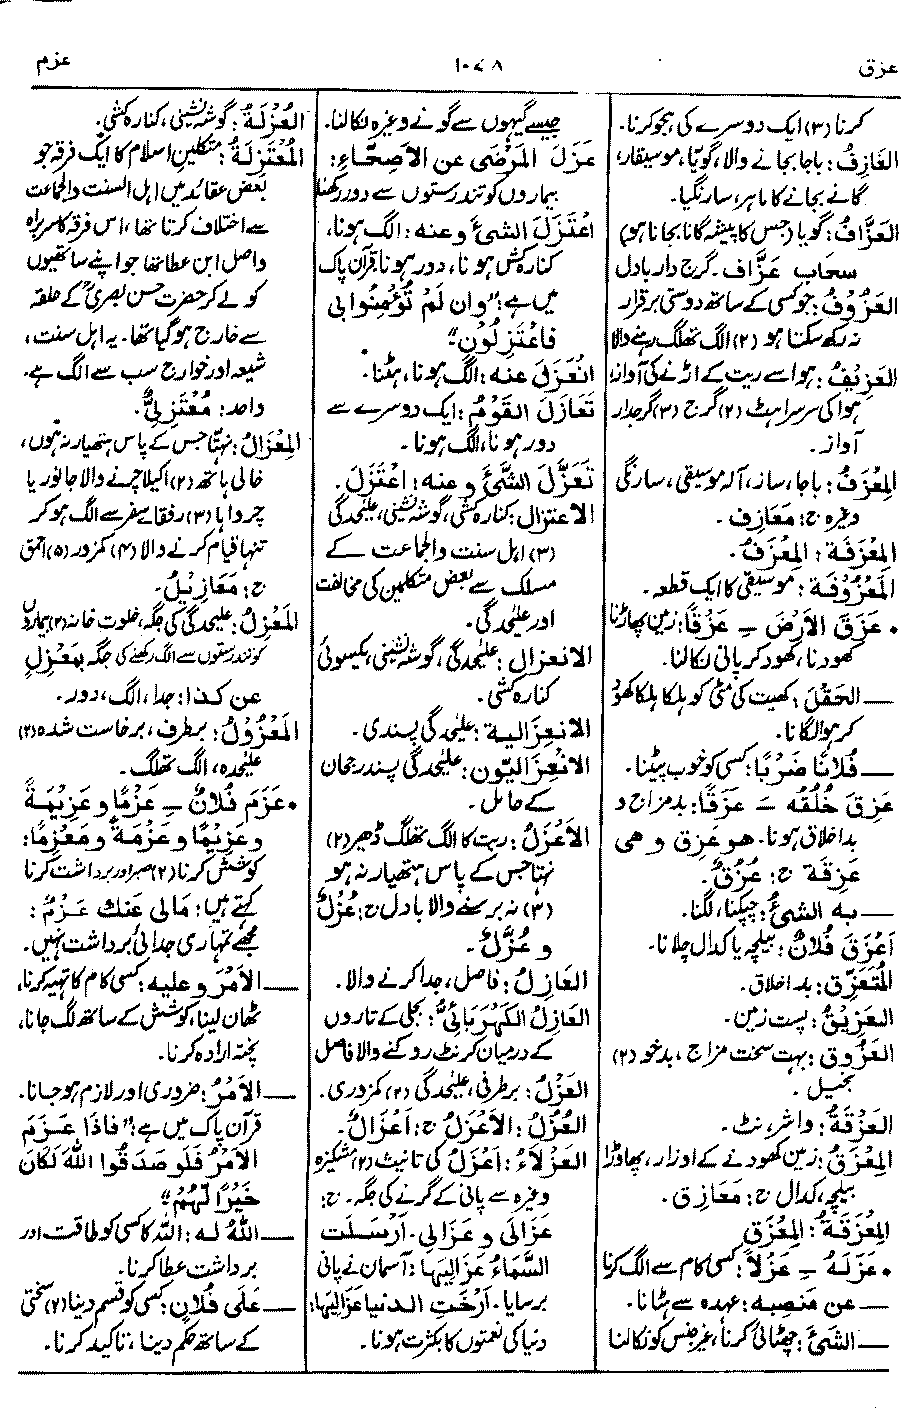 عزق
۱۰۷۸
عزم
کرنا (۳) ایک دوسرے کی ہجو کرنا۔
العَازِفُ: باجا بجانے والا، گویّا، موسیقار،
گانے بجانے کا ماہر، سارنگیا۔
العَزَّافُ: گویا (جس کا پیشہ گانا بجانا ہو)
سحاب عَزَّاف۔ گرج دار بادل
العَزُوْفُ: جو کسی کے ساتھ دوستی برقرار
نہ رکھ سکتا ہو (۲) الگ تھلگ رہنے والا
العَزِیْفُ: ہوا سے ریت کے اڑنے کی آواز،
ہوا کی سرسراہٹ (۲) گرج (۳) گرجدار
آواز۔
المِعْزَفُ: باجا، ساز، آلہ موسیقی، سارنگی
وغیرہ ج: مَعَازِف۔
المِعْزَفَة: المِعْزَفُ۔
المَعْزُوْفَة: موسیقی کا ایک قطعہ۔
• عَزَقَ الأرْضَ ــِ عَزْقًا: زمین پھاڑنا
کھودنا، کھود کر پانی نکالنا۔
ــ الحَقْلَ: کھیت کی مٹی کو ہلکا ہلکا کھود
کر ہوا لگانا۔
ــ فُلَانًا ضَرْبًا: کسی کو خوب پیٹنا۔
عَزِقَ خُلُقُه ــَ عَزَقًا: بد مزاج و
بد اخلاق ہونا۔ هو عَزِق و هی
عَزِقَة ج: عُزُقٌ۔
ــ به الشیءُ: چپکنا، لگنا۔
اَعْزَقَ فُلَانٌ: بیلچہ یا کدال چلانا۔
المُتَعَزِّق: بد اخلاق۔
العَزِیْقُ: پست زمین۔
العَزُوق: بہت سخت مزاج، بدخو (۲)
بخیل۔
العَزْقَةُ: واشر، نٹ۔
المِعْزَقُ: زمین کھودنے کے اوزار، پھاوڑا
بیلچہ، کدال ج: مَعَازِق۔
المِعْزَقَةُ: المِعْزَق
• عَزَلَهُ ــِ عَزْلًا: کسی کام سے الگ کرنا
ــ عن مَنصِبه: عہدہ سے ہٹانا۔
ــ الشیءَ: چھٹائی کرنا، غیر جنس کو نکالنا
جیسے گیہوں سے گونے وغیرہ نکالنا۔
عَزَلَ المَرْضَى عن الأصِحَّاءِ:
بیماروں کو تندرستوں سے دور رکھنا
اعْتَزَلَ الشیءَ وعنه: الگ ہونا،
کنارہ کش ہونا، دور ہونا۔ قرآن پاک
میں ہے: "وان لَمْ تُؤْمِنُوا لِی
فَاعْتَزِلُوْنِ"
انْعَزَلَ عنه: الگ ہونا، ہٹنا۔
تَعَازَلَ القَوْمُ: ایک دوسرے سے
دور ہونا، الگ ہونا۔
تَعَزَّلَ الشَّیءَ وعنه: اعْتَزَلَ۔
الاعتزال: کنارہ کشی، گوشہ نشینی، علیحدگی
(۳) اہل سنت والجماعت کے
مسلک سے بعض متکلمین کی مخالفت
اور علیٰحدگی۔
الانعزال: علیٰحدگی، گوشہ نشینی، یکسوئی
کنارہ کشی۔
الانْعِزالیة: علیٰحدگی پسندی۔
الانْعِزَالِیّون: علیٰحدگی پسند رجحان
کے حامل۔
الأعْزَلُ: ریت کا الگ تھلگ ڈھیر (۲)
نہتا جس کے پاس ہتھیار نہ ہو
(۳) نہ برسنے والا بادل ج: عُزْلٌ
و عُزَّلٌ۔
العَازِلُ: فاصل، جدا کرنے والا۔
العَازِلُ الکَهْرَبَائِیُّ: بجلی کے تاروں
کے درمیان کرنٹ روکنے والا فاصل
العَزْلُ: برطرفی، علیٰحدگی (۲) کمزوری۔
العُزُلُ: الأعْزَلُ ج: اَعْزَالٌ۔
العَزْلَاءُ: اَعْزَلُ کی تانیث (۲) مشکیزہ
وغیرہ سے پانی کے گرنے کی جگہ۔ ج:
عَزَالَى و عَزَالِی۔ اَرْسَلَت
السَّمَاءُ عَزَالِیَهَا: آسمان نے پانی
برسایا۔ اَرْخَتِ الدنیا عَزَالِیَهَا:
دنیا کی نعمتوں کا بکثرت ہونا۔
العُزْلَةُ: گوشہ نشینی، کنارہ کشی۔
المُعْتَزِلَةُ: متکلمین اسلام کا ایک فرقہ جو
بعض عقائد میں اہل السنت والجماعت
سے اختلاف کرتا تھا، اس فرقہ کا سربراہ
واصل ابن عطا تھا جو اپنے ساتھیوں
کو لے کر حضرت حسن بصریؒ کے حلقہ
سے خارج ہو گیا تھا۔ یہ اہل سنت،
شیعہ اور خوارج سب سے الگ ہے۔
واحد: مُعْتَزِلِیٌّ۔
المِعْزَالُ: نہتّا جس کے پاس ہتھیار نہ ہوں،
خالی ہاتھ (۲) اکیلا چرنے والا جانور یا
چرواہا (۳) رفقائے سفر سے الگ ہو کر
تنہا قیام کرنے والا (۴) کمزور (۵) احمق
ج: مَعَازِیْلُ۔
المَعْزِلُ: علیحدگی کی جگہ، خلوت خانہ (۲) بیماروں
کو تندرستوں سے الگ رکھنے کی جگہ بِمَعْزِلٍ
عن کذا: جدا، الگ، دور۔
المَعْزُوْلُ: برطرف، برخاست شدہ (۲)
علیٰحدہ، الگ تھلگ۔
• عَزَمَ فُلَانٌ ــِ عَزْمًا و عَزِیْمَةً
و عَزِیْمًا و عَزْمَةً و مَعْزِمًا:
کوشش کرنا (۲) صبر اور برداشت کرنا
کہتے ہیں: مَالی عَنْكَ عَزْمٌ:
مجھے تمہاری جدائی برداشت نہیں۔
ــ الأمْرَ و علیه: کسی کام کا تہیہ کرنا،
ٹھان لینا، کوشش کے ساتھ لگ جانا،
پختہ ارادہ کرنا۔
ــ الأمْرُ: ضروری اور لازم ہو جانا۔
قرآن پاک میں ہے: "فَاِذَا عَزَمَ
الأمْرُ فَلَو صَدَقُوا اللهَ لَکَانَ
خَیْرًا لَّهُمْ"
ــ اللهُ له: اللہ کا کسی کو طاقت اور
برداشت عطا کرنا۔
ــ عَلَى فُلَانٍ: کسی کو قسم دینا (۲) سختی
کے ساتھ حکم دینا، تاکید کرنا۔